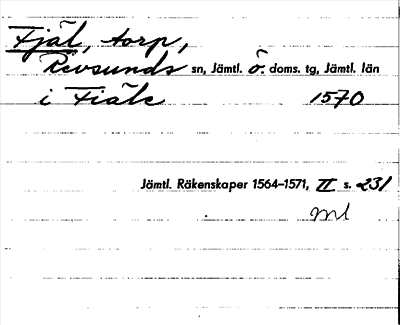 Fjäl, torp,
Revsunds sn, Jämtl. ö. doms. tg, Jämtl. län
i Fiäle 1570
Jämtl. Räkenskaper 1564–1571, II s. 231
ml